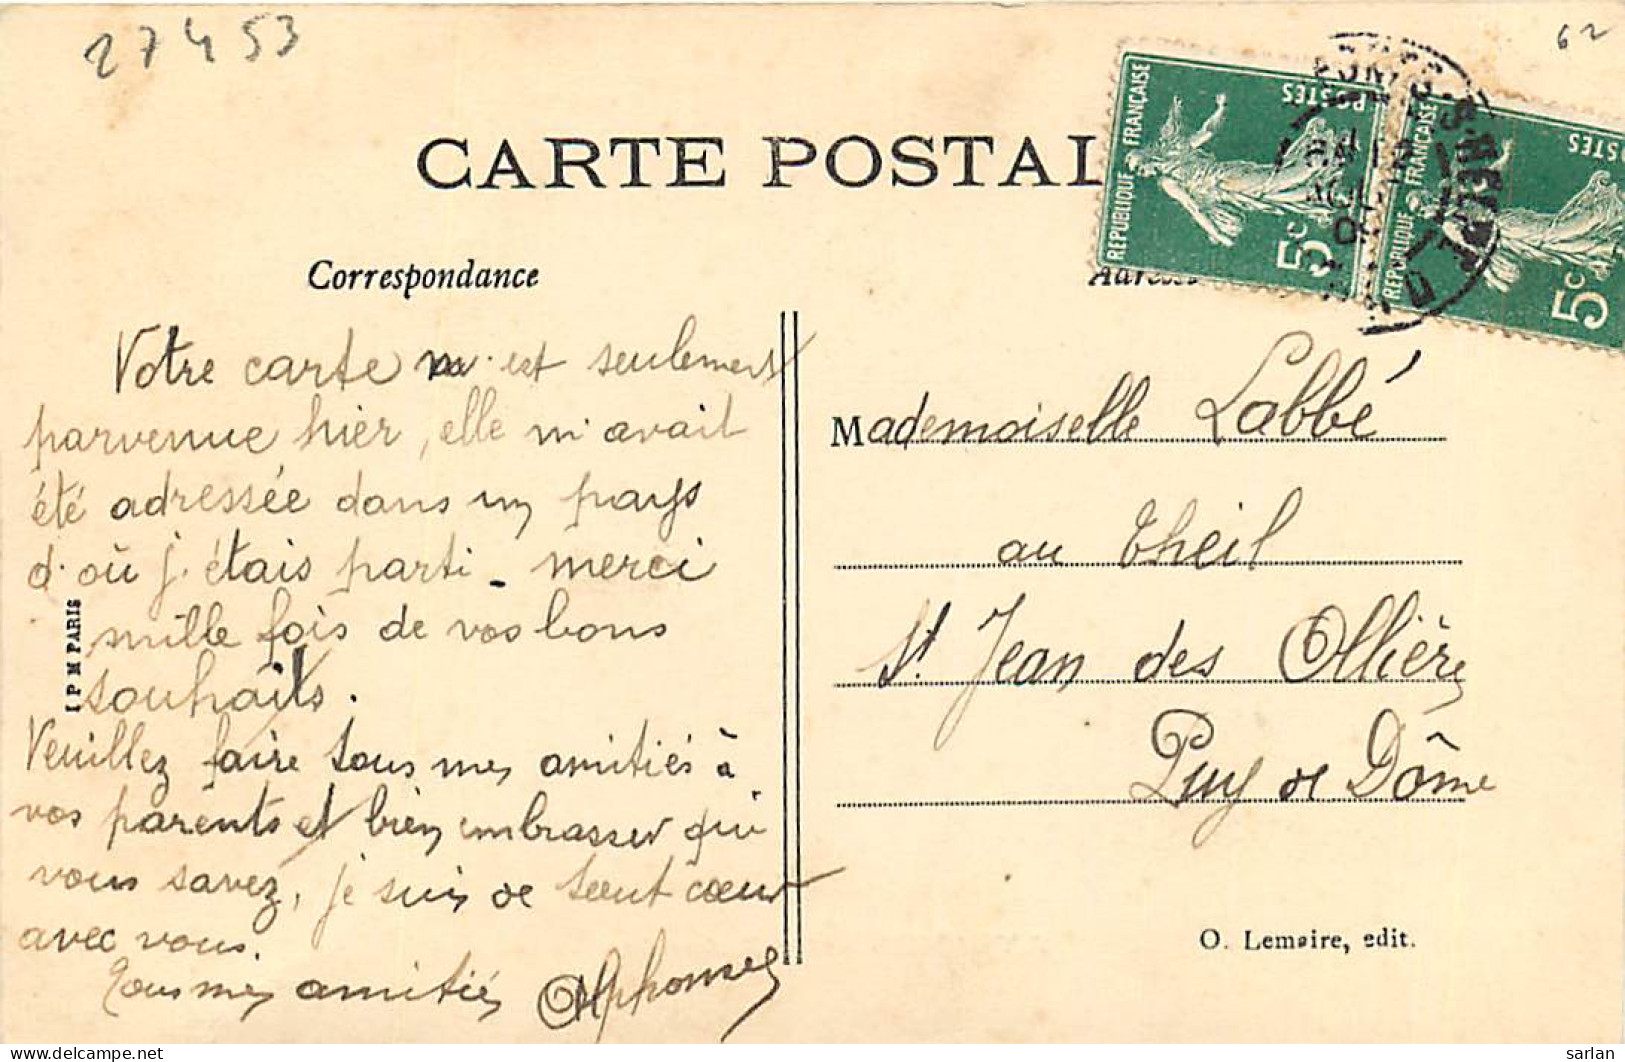 27453
62
CARTE POSTAL
RÉPUBLIQUE FRANÇAISE
POSTES
5c
RÉPUBLIQUE FRANÇAISE
POSTES
5c
Correspondance
Votre carte m'est seulement
parvenue hier, elle m'avait
été adressée dans un pays
d'où j'étais parti - merci
mille fois de vos bons
souhaits.
Veuillez faire tous mes amitiés à
vos parents et bien embrasser qui
vous savez, je suis de tout cœur
avec vous.
Tous mes amitiés Alphonse
I P M PARIS
Adresse
Mademoiselle Labbé
au Theil
St Jean des Ollières
Puy de Dôme
O. Lemaire, edit.
sarlan